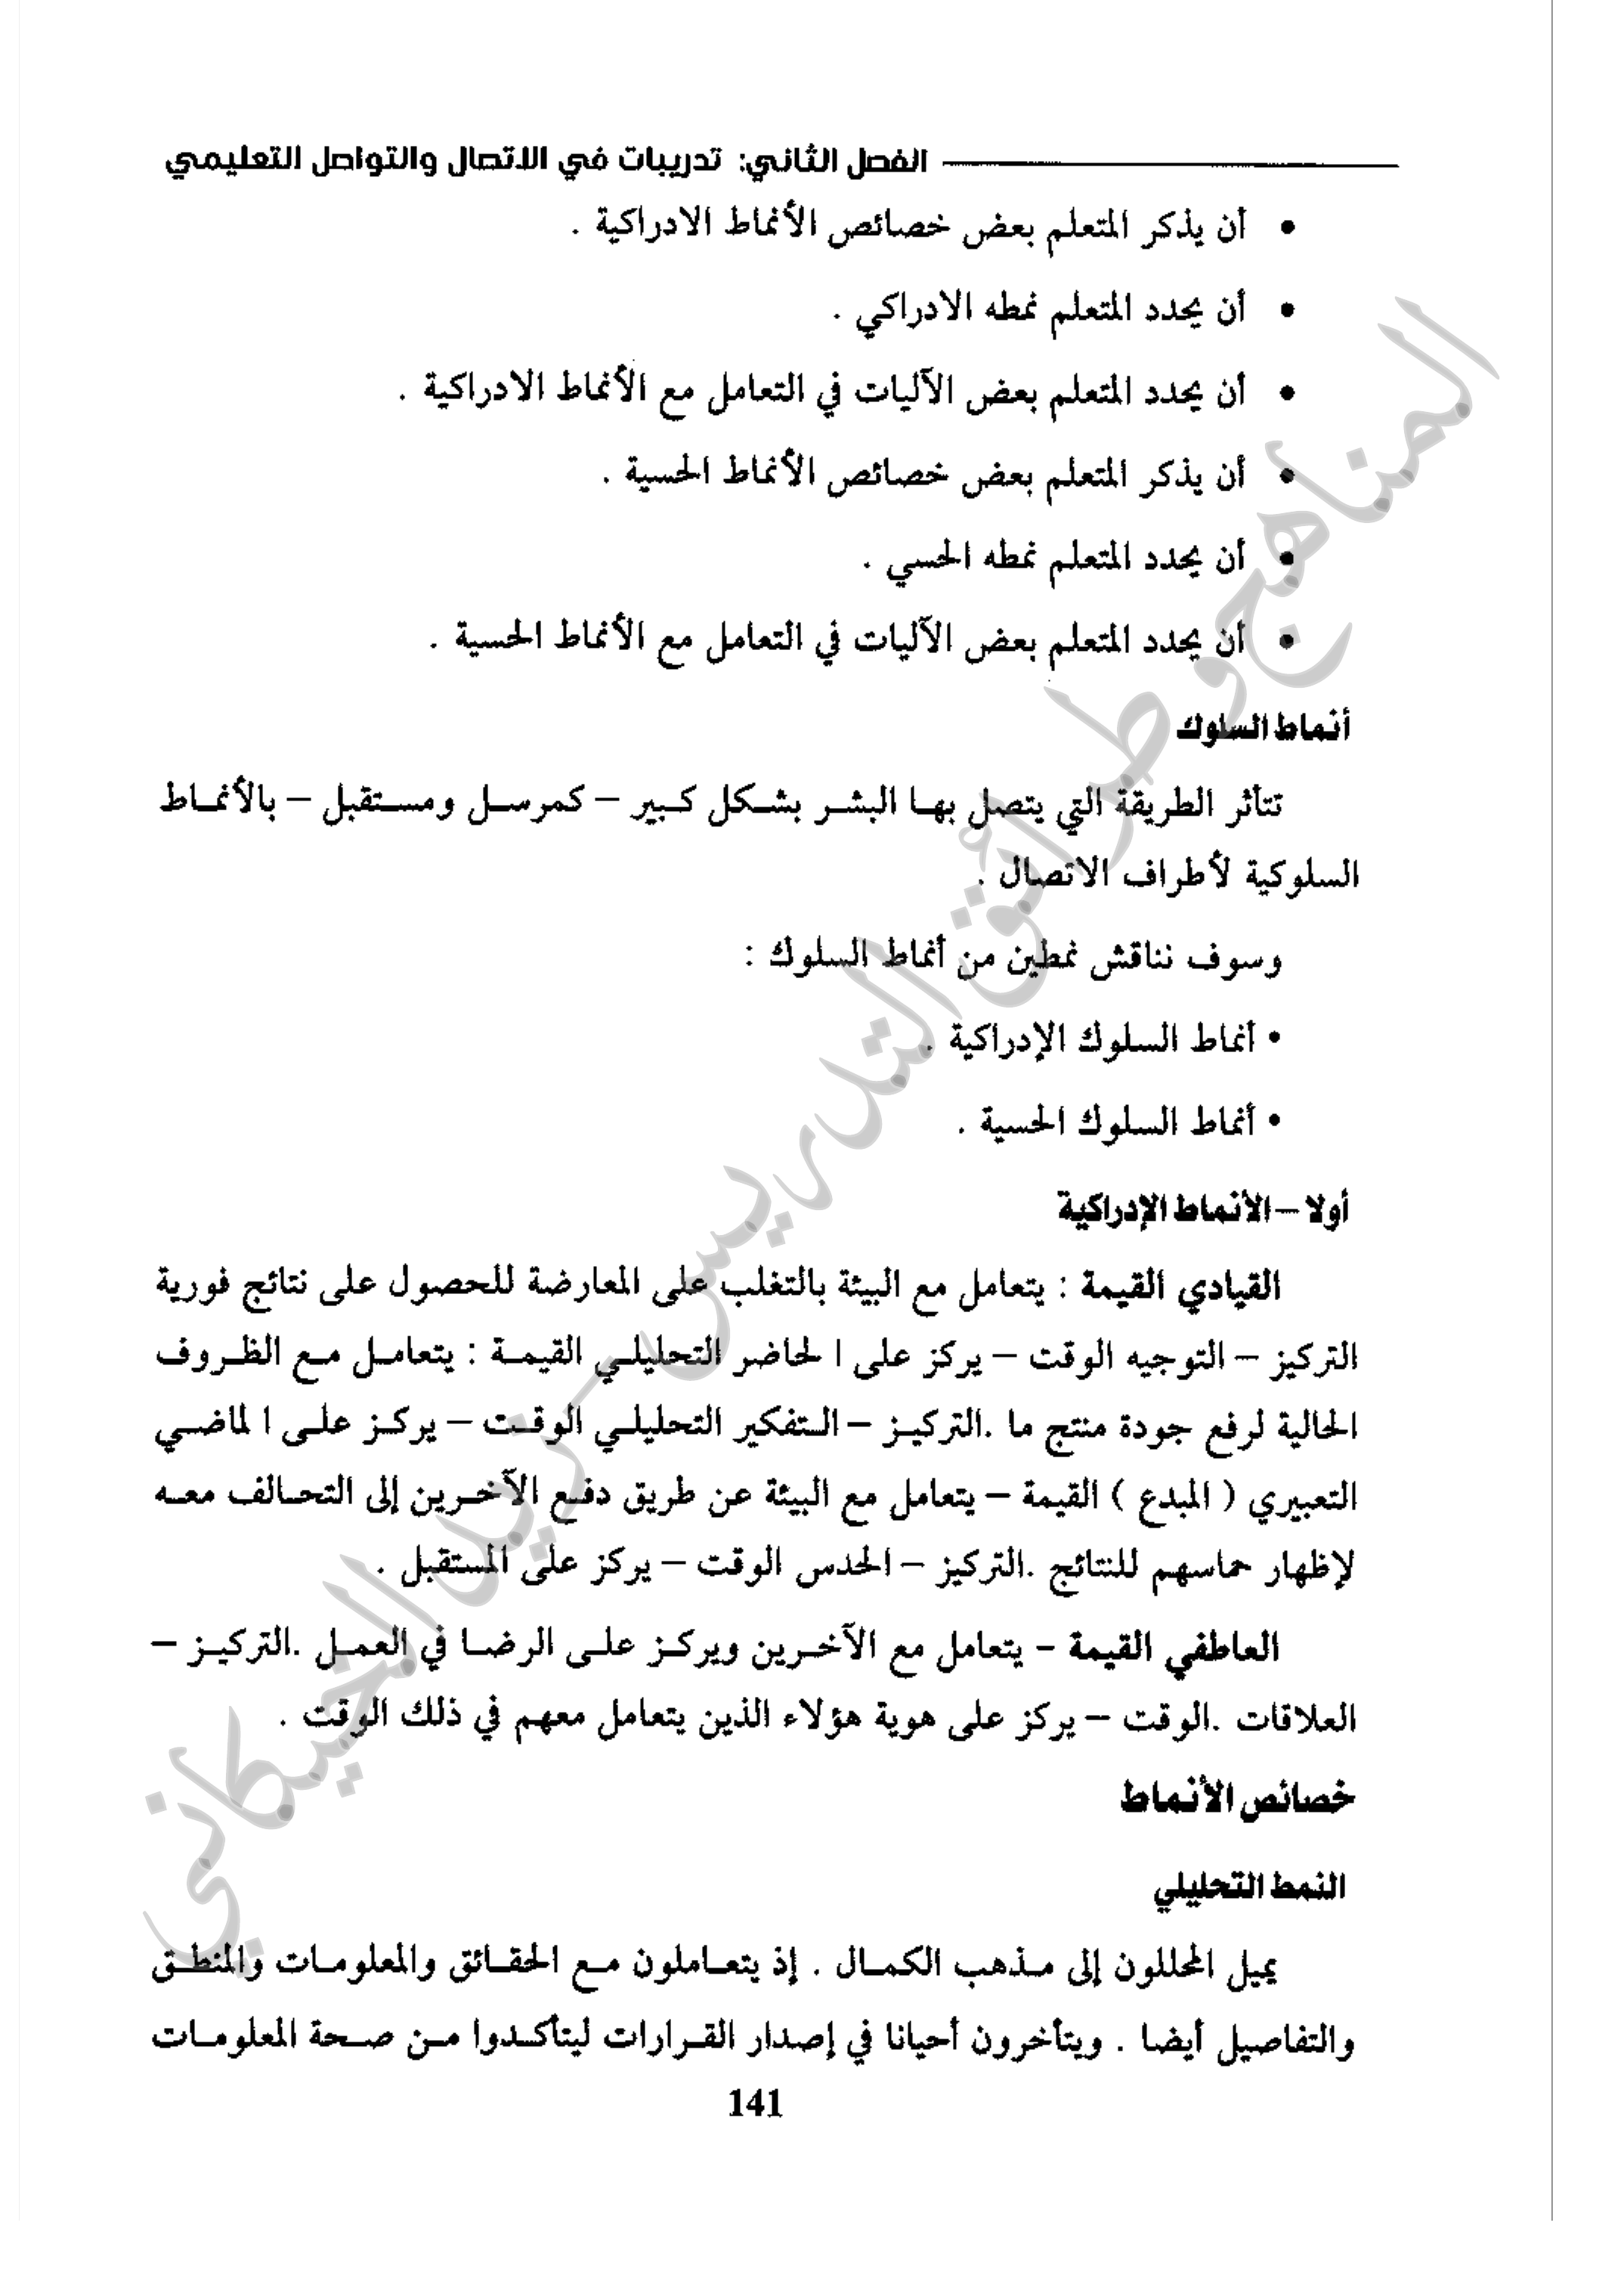 الفصل الثاني: تدريبات في الاتصال والتواصل التعليمي
• أن يذكر المتعلم بعض خصائص الأنماط الادراكية .
• أن يحدد المتعلم نمطه الادراكي .
• أن يحدد المتعلم بعض الآليات في التعامل مع الأنماط الادراكية .
• أن يذكر المتعلم بعض خصائص الأنماط الحسية .
• أن يحدد المتعلم نمطه الحسي .
• أن يحدد المتعلم بعض الآليات في التعامل مع الأنماط الحسية .
أنماط السلوك
تتأثر الطريقة التي يتصل بها البشر بشكل كبير – كمرسل ومستقبل – بالأنماط
السلوكية لأطراف الاتصال .
وسوف نناقش نمطين من أنماط السلوك :
• أنماط السلوك الإدراكية .
• أنماط السلوك الحسية .
أولا – الأنماط الإدراكية
القيادي القيمة : يتعامل مع البيئة بالتغلب على المعارضة للحصول على نتائج فورية
التركيز – التوجيه الوقت – يركز على ا لحاضر التحليلي القيمة : يتعامل مع الظروف
الحالية لرفع جودة منتج ما .التركيز – التفكير التحليلي الوقت – يركز على ا لماضي
التعبيري ( المبدع ) القيمة – يتعامل مع البيئة عن طريق دفع الآخرين إلى التحالف معه
لإظهار حماسهم للنتائج .التركيز – الحدس الوقت – يركز على المستقبل .
العاطفي القيمة - يتعامل مع الآخرين ويركز على الرضا في العمل .التركيز –
العلاقات .الوقت – يركز على هوية هؤلاء الذين يتعامل معهم في ذلك الوقت .
خصائص الأنماط
النمط التحليلي
يميل المحللون إلى مذهب الكمال . إذ يتعاملون مع الحقائق والمعلومات والمنطق
والتفاصيل أيضا . ويتأخرون أحيانا في إصدار القرارات ليتأكدوا من صحة المعلومات
141
المناهج وطرائق التدريس - زيد الخيكاني